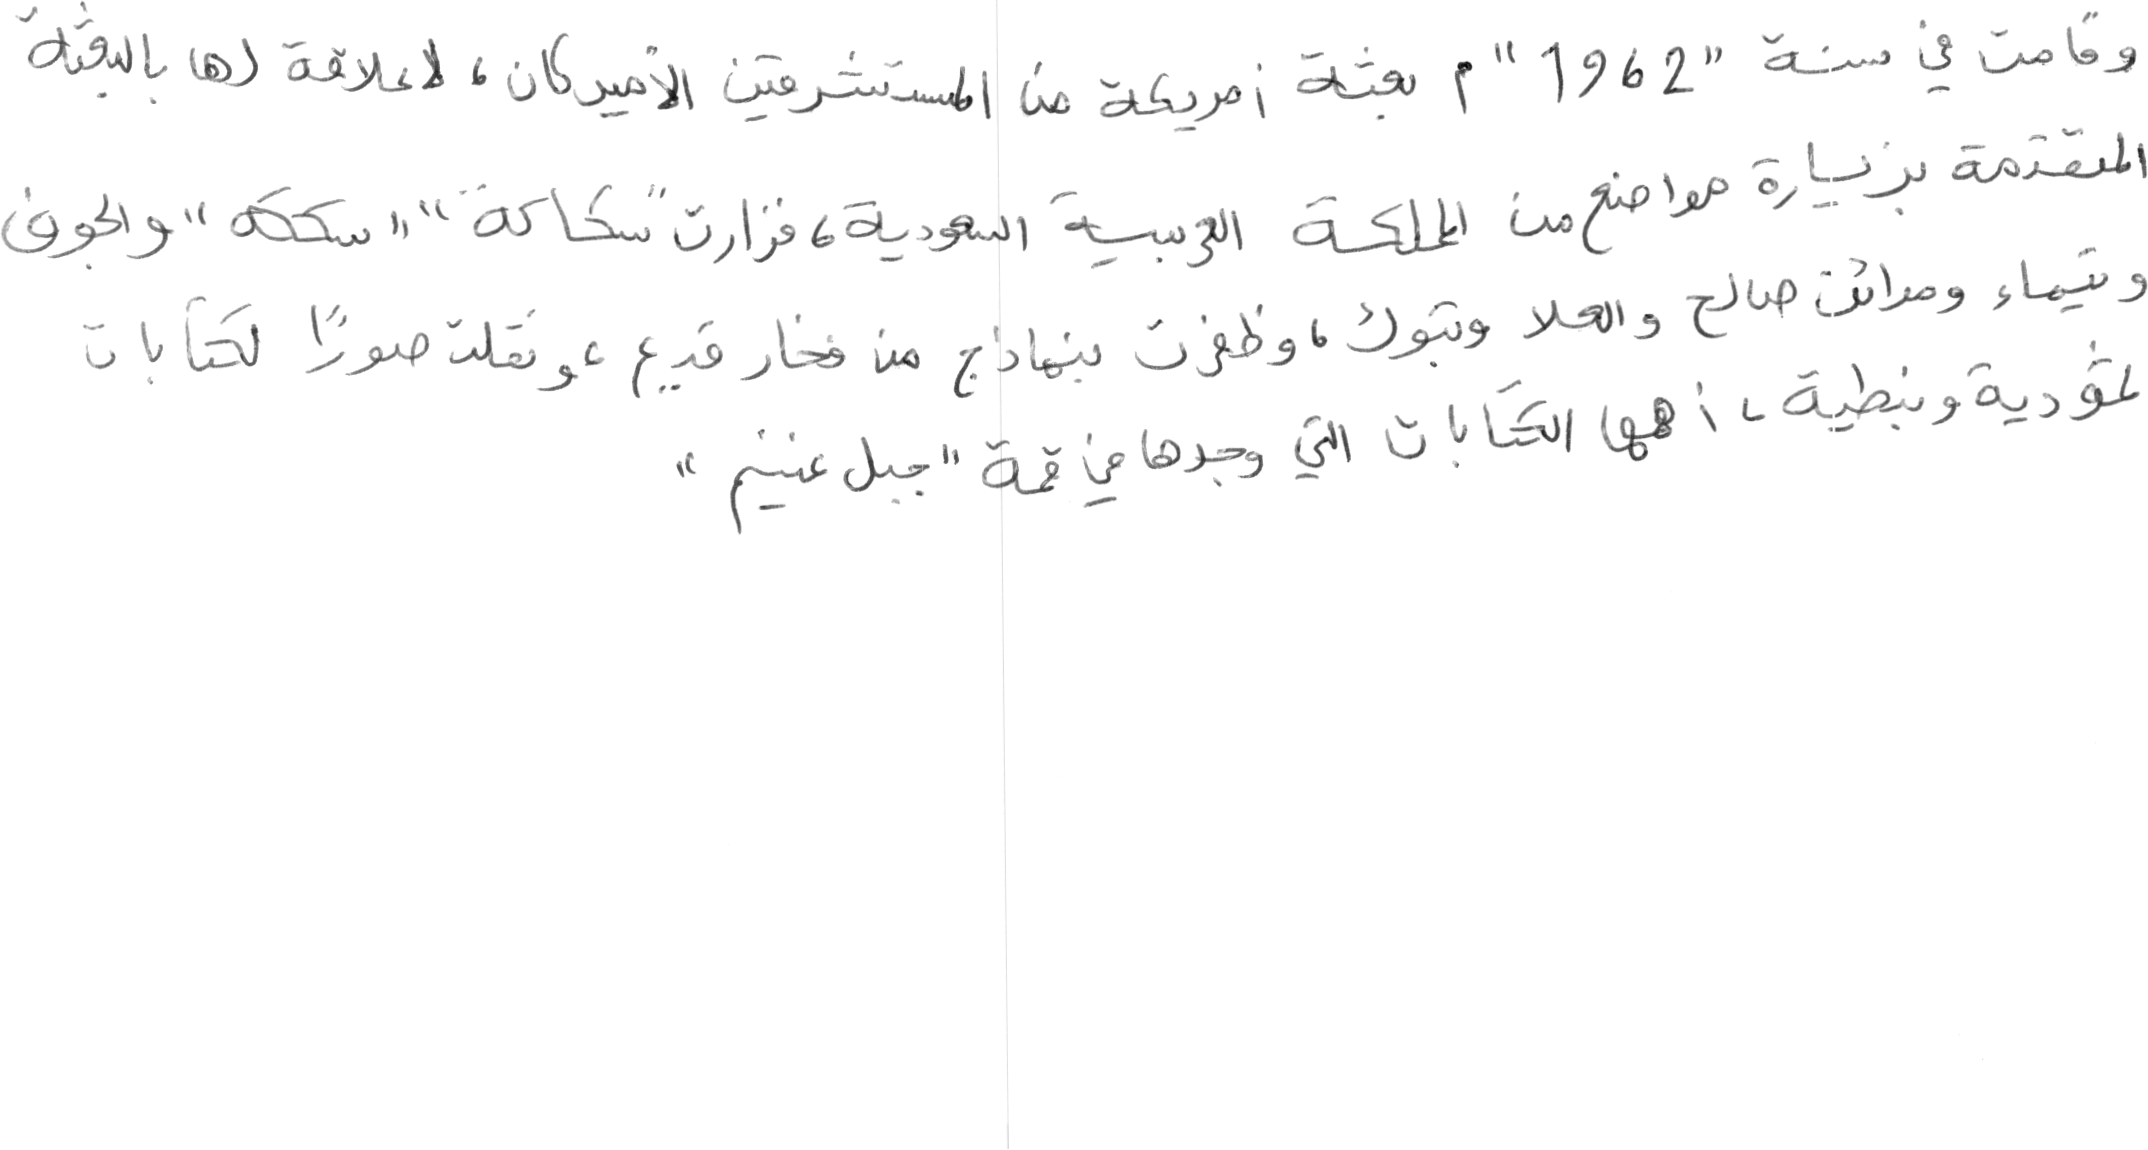 وقامت في سنة "1962" م بعثة أمريكة من المستشرقين الأميركان، لا علاقة لها بالبعثة
المتقدمة بزيارة مواضع من المملكة العربية السعودية، فزارت "سكاكة" "سككه" والجوف
وتيماء ومدائن صالح والعلا وتبوك، وظفرت بنماذج من فخار قديم، ونقلت صورًا لكتابات
ثمودية ونبطية، أهمها الكتابات التي وجدها في قمة "جبل غنيم"